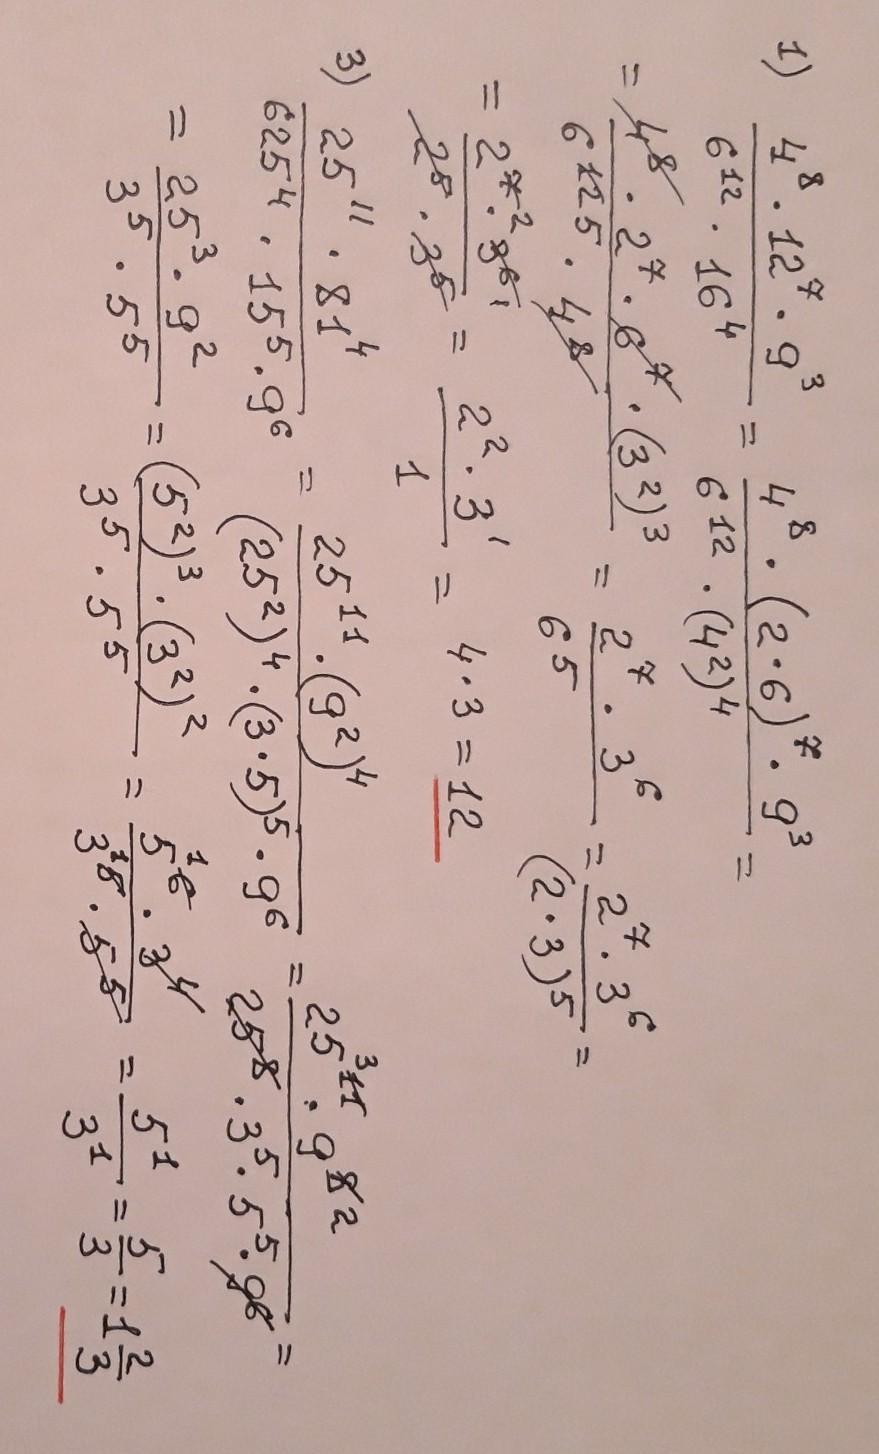 1) 4⁸ · 12⁷ · 9³ / 6¹² · 16⁴ = 4⁸ · (2·6)⁷ · 9³ / 6¹² · (4²)⁴ =
= 4⁸ · 2⁷ · 6⁷ · (3²)³ / 6¹² ⁵ · 4⁸ = 2⁷ · 3⁶ / 6⁵ = 2⁷ · 3⁶ / (2·3)⁵ =
= 2⁷ ² · 3⁶ ¹ / 2⁵ · 3⁵ = 2² · 3¹ / 1 = 4·3 = 12
3) 25¹¹ · 81⁴ / 625⁴ · 15⁵ · 9⁶ = 25¹¹ · (9²)⁴ / (25²)⁴ · (3·5)⁵ · 9⁶ = 25¹¹ ³ · 9⁸ ² / 25⁸ · 3⁵ · 5⁵ · 9⁶ =
= 25³ · 9² / 3⁵ · 5⁵ = (5²)³ · (3²)² / 3⁵ · 5⁵ = 5⁶ ¹ · 3⁴ / 3⁵ ¹ · 5⁵ = 5¹ / 3¹ = 5/3 = 1 2/3